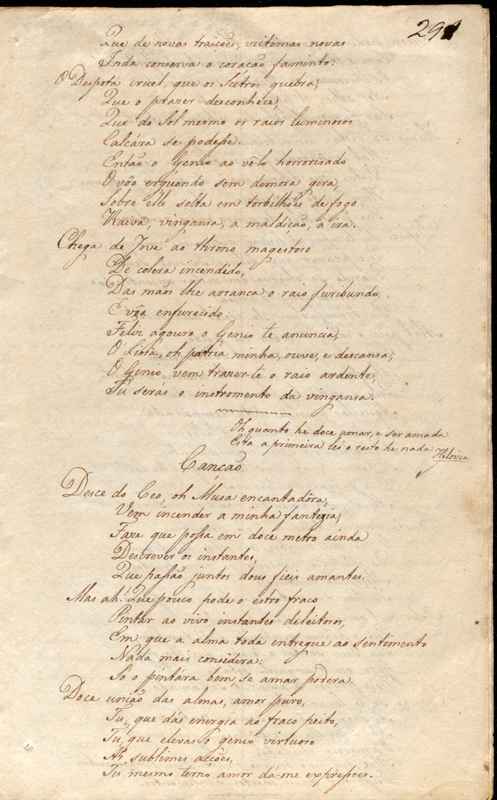 291
Que de novas traições, victimas novas
Inda conserva o coração faminto:
O Despota cruel, que os Sctros quebra;
Que o prazer desconhece;
Que do Sol mesmo os raios luminosos
Calcára se podesse.
Então o Genio ao vê-lo horrorisado
O vôo erguendo sem demora gira,
Sobre elle solta em torbilhões de fogo
Raiva, vingansa, a maldição, a ira.
Chega de Jove ao throno magestoso
De colera incendido,
Das mãos lhe arranca o raio furibundo
E vôa enfurecido.
Feliz agouro o Genio te anuncia;
O Lisia, oh patria minha, ouve, e descansa;
O Genio vem trazer-te o raio ardente,
Tu serás o instromento da vingansa.
Oh quanto he doce amar, e ser amada
Esta a primeira lei o resto he nada
Heloiza
Canção
Desce do Ceo, oh Musa encantadôra,
Vem incender a minha fantezia;
Faze que possa em doce metro ainda
Descrever os instantes,
Que passão juntos dous fieis amantes.
Mas ah! Que pouco pode o estro fraco
Pintar ao vivo instantes deleitosos,
Em que a alma toda entregue ao sentimento
Nada mais considera:
Só o pintára bem se amar podera.
Doce união das almas, amor puro,
Tu, que dás energia ao fraco peito,
Tu, que elevas o genio virtuoso
Ás sublimes acções,
Tu mesmo terno amor dá-me expressões.